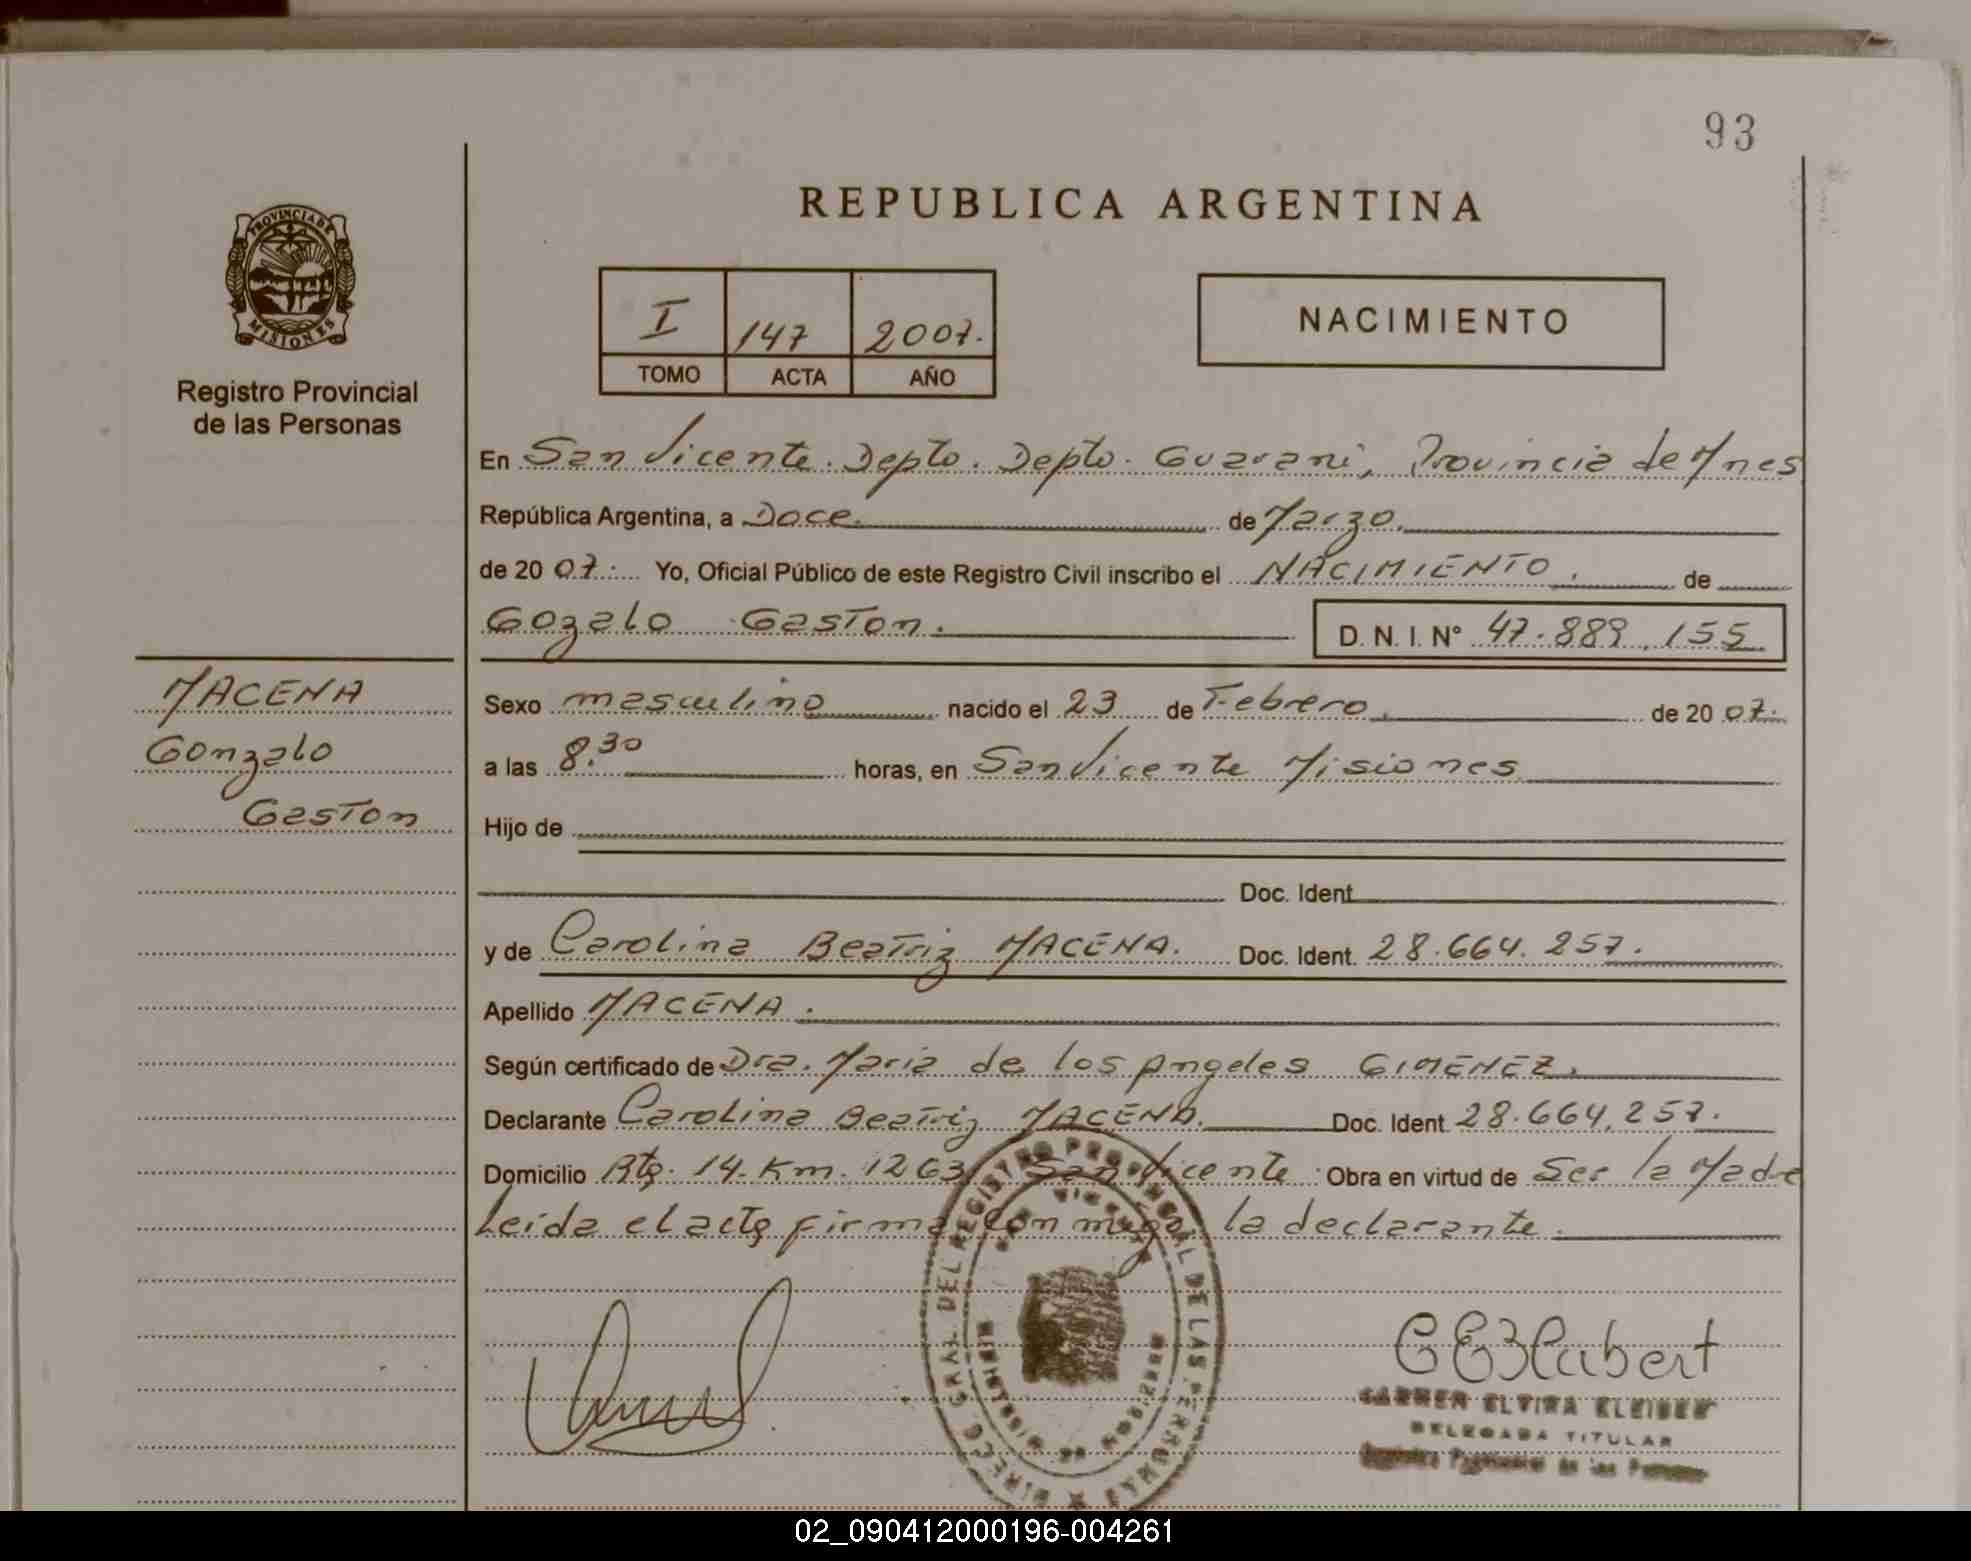 93
REPUBLICA ARGENTINA
PROVINCIA DE
MISIONES
Registro Provincial
de las Personas
I 147 2007.
TOMO ACTA AÑO
NACIMIENTO
En San Vicente. Depto. Depto. Guarani, Provincia de Mnes
República Argentina, a Doce. de Marzo.
de 20 07. Yo, Oficial Público de este Registro Civil inscribo el NACIMIENTO. de
Gozalo Gaston. D. N. I. Nº 47.889.155
MACENA
Gonzalo
Gaston
Sexo masculino nacido el 23 de Febrero. de 20 07.
a las 8.30 horas, en San Vicente Misiones
Hijo de
Doc. Ident.
y de Carolina Beatriz MACENA. Doc. Ident. 28.664.257.
Apellido MACENA.
Según certificado de Dra. Maria de los Angeles GIMENEZ.
Declarante Carolina Beatriz MACENA. Doc. Ident. 28.664.257.
Domicilio Rta. 14. Km. 1263 San Vicente. Obra en virtud de Ser la Madre
Leida el acta firma con migo la declarante.
DIREC. GRAL. DEL REGISTRO PROVINCIAL DE LAS PERSONAS
CARMEN ELVIRA
DELEGADA TITULAR
Registro Provincial de las Personas
02_090412000196-004261